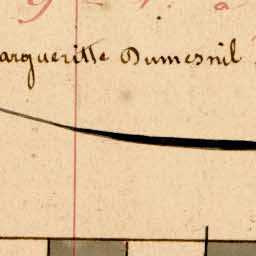 argueritte Dumesnil